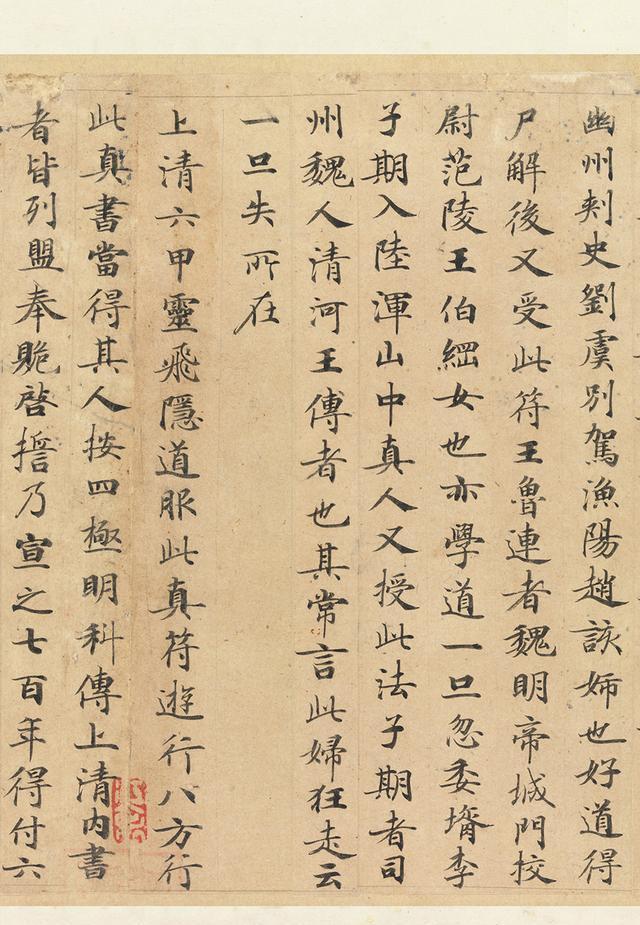 幽州刾史劉虞別駕漁陽趙該姉也好道得
尸解後又受此符王魯連者魏明帝城門校
尉范陵王伯綱女也亦學道一旦忽委壻李
子期入陸渾山中真人又授此法子期者司
州魏人清河王傅者也其常言此婦狂走云
一旦失所在
上清六甲靈飛隱道服此真符遊行八方行
此真書當得其人按四極明科傳上清内書
者皆列盟奉贶啓擔乃宣之七百年得付六